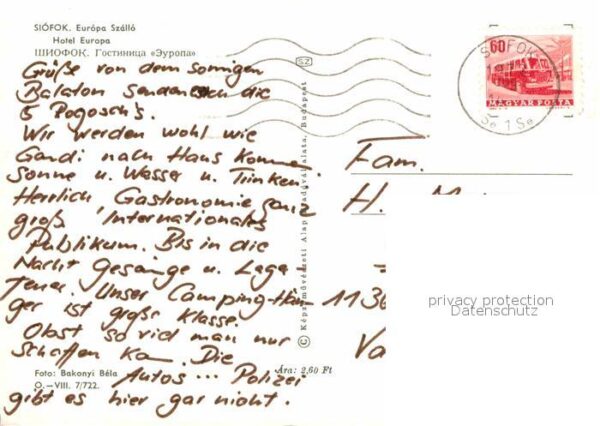 SIÓFOK. Európa Szálló
Hotel Europa
ШИОФОК. Гостиница «Эуропа»
Grüße von dem sonnigen
Balaton senden die
5 Pogosch's.
Wir werden wohl wie
Gandi nach Haus kommen
Sonne u. Wasser u. Trinken
Herrlich, Gastronomie ganz
groß, Internationales
Publikum. Bis in die
Nacht Gesänge u. Lager-
feuer. Unser Camping-
ger ist große Klasse.
Obst so viel man nur
schaffen ka. Die
Autos ... Polizei
gibt es hier gar nicht.
Foto: Bakonyi Béla
O.–VIII. 7/722.
Ára: 2,60 Ft
SZ
© Képzőművészeti Alap Kiadóvállalata, Budapest
60
MAGYAR POSTA
SIÓFOK
Se 1 Se
Fam.
H. M
1136
Va
privacy protection
Datenschutz